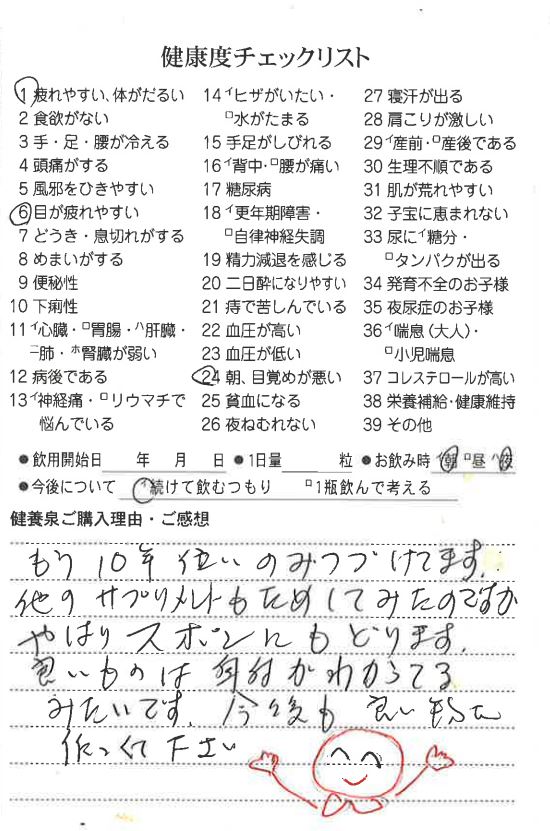 健康度チェックリスト
1 疲れやすい、体がだるい
2 食欲がない
3 手・足・腰が冷える
4 頭痛がする
5 風邪をひきやすい
6 目が疲れやすい
7 どうき・息切れがする
8 めまいがする
9 便秘性
10 下痢性
11 ィ心臓・ロ胃腸・ハ肝臓・
ニ肺・ホ腎臓が弱い
12 病後である
13 ィ神経痛・ロリウマチで
悩んでいる
14 ィヒザがいたい・
ロ水がたまる
15 手足がしびれる
16 ィ背中・ロ腰が痛い
17 糖尿病
18 ィ更年期障害・
ロ自律神経失調
19 精力減退を感じる
20 二日酔になりやすい
21 痔で苦しんでいる
22 血圧が高い
23 血圧が低い
24 朝、目覚めが悪い
25 貧血になる
26 夜ねむれない
27 寝汗が出る
28 肩こりが激しい
29 ィ産前・ロ産後である
30 生理不順である
31 肌が荒れやすい
32 子宝に恵まれない
33 尿にィ糖分・
ロタンパクが出る
34 発育不全のお子様
35 夜尿症のお子様
36 ィ喘息（大人）・
ロ小児喘息
37 コレステロールが高い
38 栄養補給・健康維持
39 その他
●飲用開始日 年 月 日 ●1日量 粒 ●お飲み時 ィ朝 ロ昼 ハ夜
●今後について ィ続けて飲むつもり ロ1瓶飲んで考える
健養泉ご購入理由・ご感想
もう10年位いのみつづけてます。
他のサプリメントもためしてみたのですが
やはりスポンにもどります。
良いものは自分がわかってる
みたいです。今後も良い物を
作って下さい